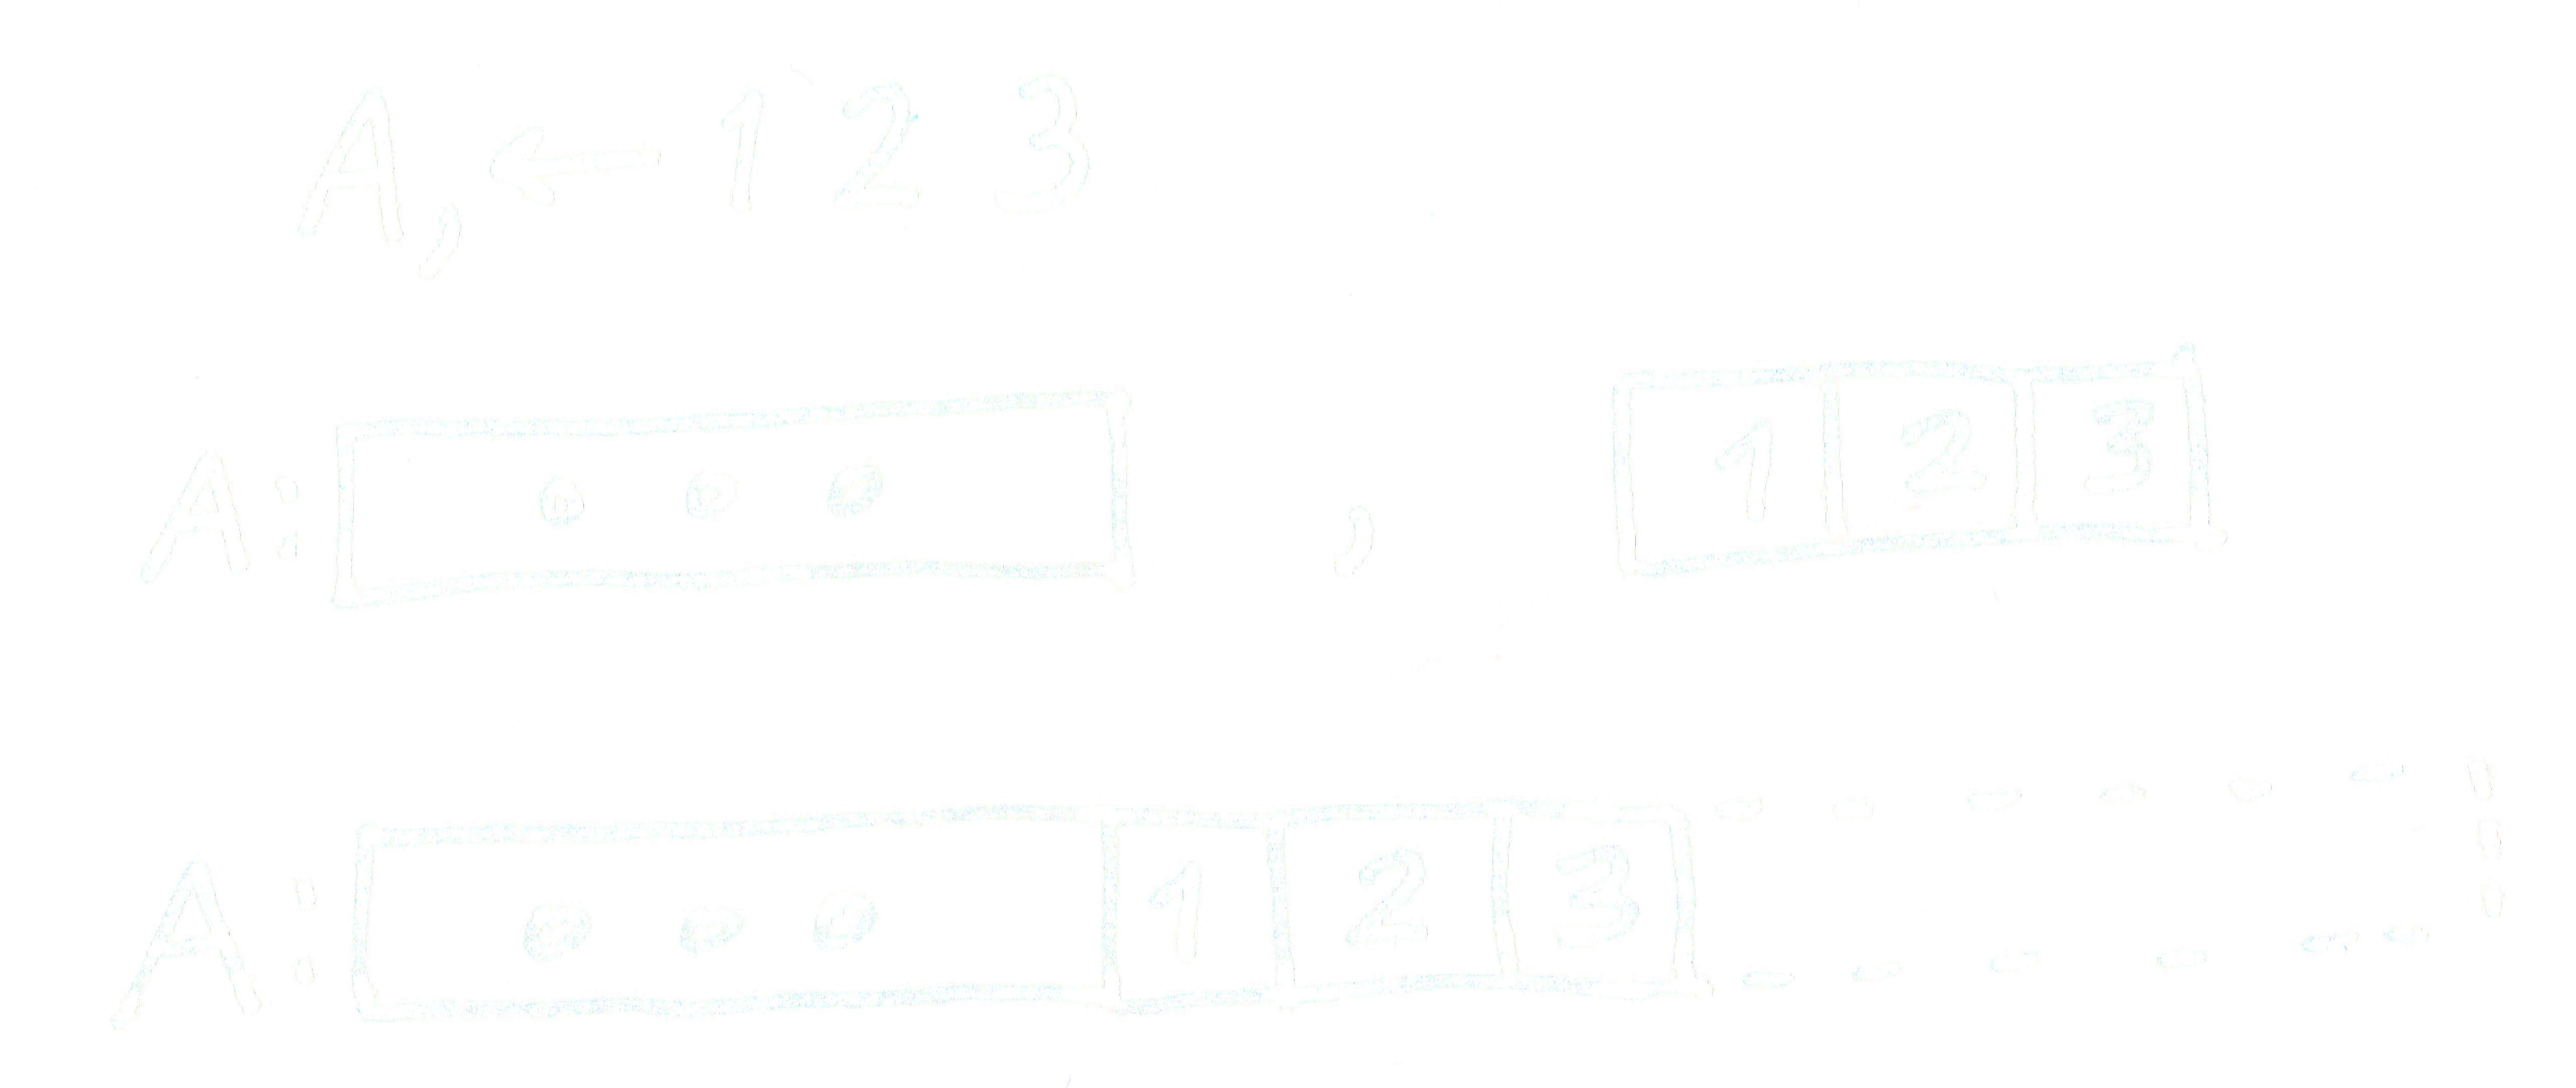 A,←1 2 3
A: ● ● ● , 1 2 3
A: ● ● ● 1 2 3